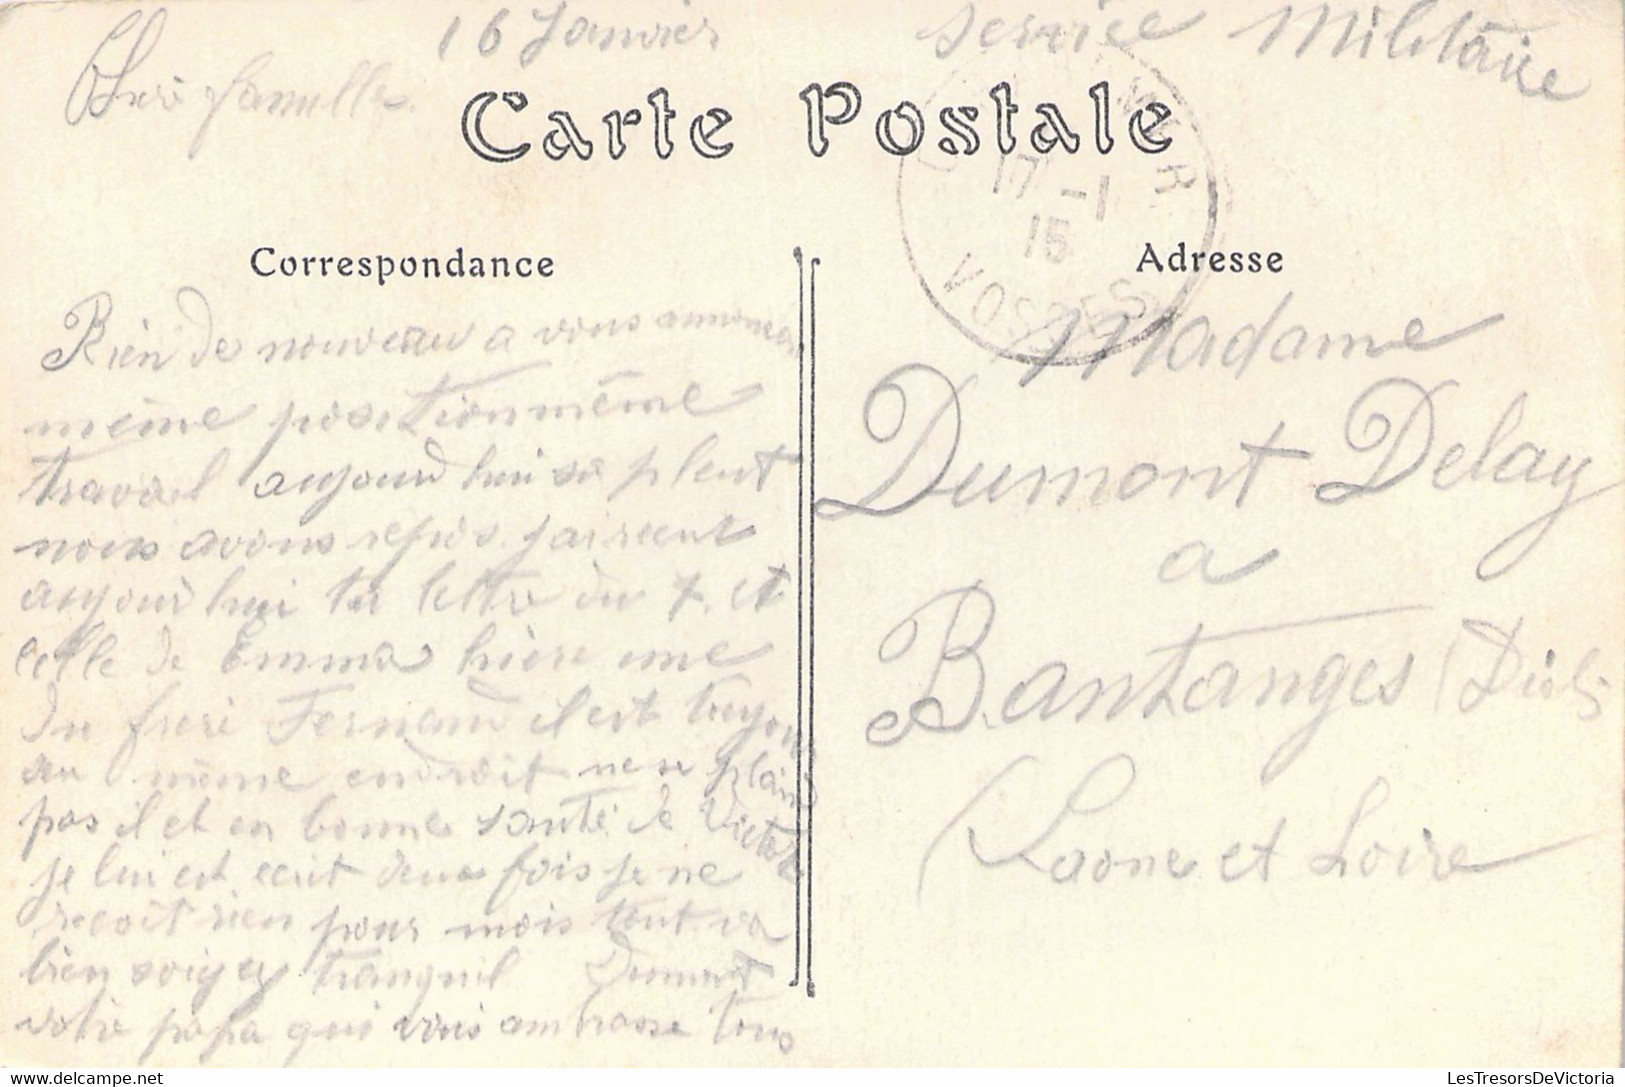 16 Janvier
Service Militaire
Chère famille
Carte Postale
17 -1
15
VOSGES
Correspondance
Adresse
Rien de nouveau a vous annoncer
même position même
travail aujourd hui sa pleut
nous avons repos jai recut
aujourd hui ta lettre du 7. et
celle de Emma hière une
du frere Fernand il est toujours
au même endroit ne se plaind
pas il et en bonne santé de Victor
je lui est ecrit deux fois je ne
recoit rien pour mois tout va
bien soigez tranquil Dumont
votre papa qui vous ambrasse tous
Madame
Dumont Delay
a
Bantanges
(Saone et Loire
LesTresorsDeVictoria
delcampe.net